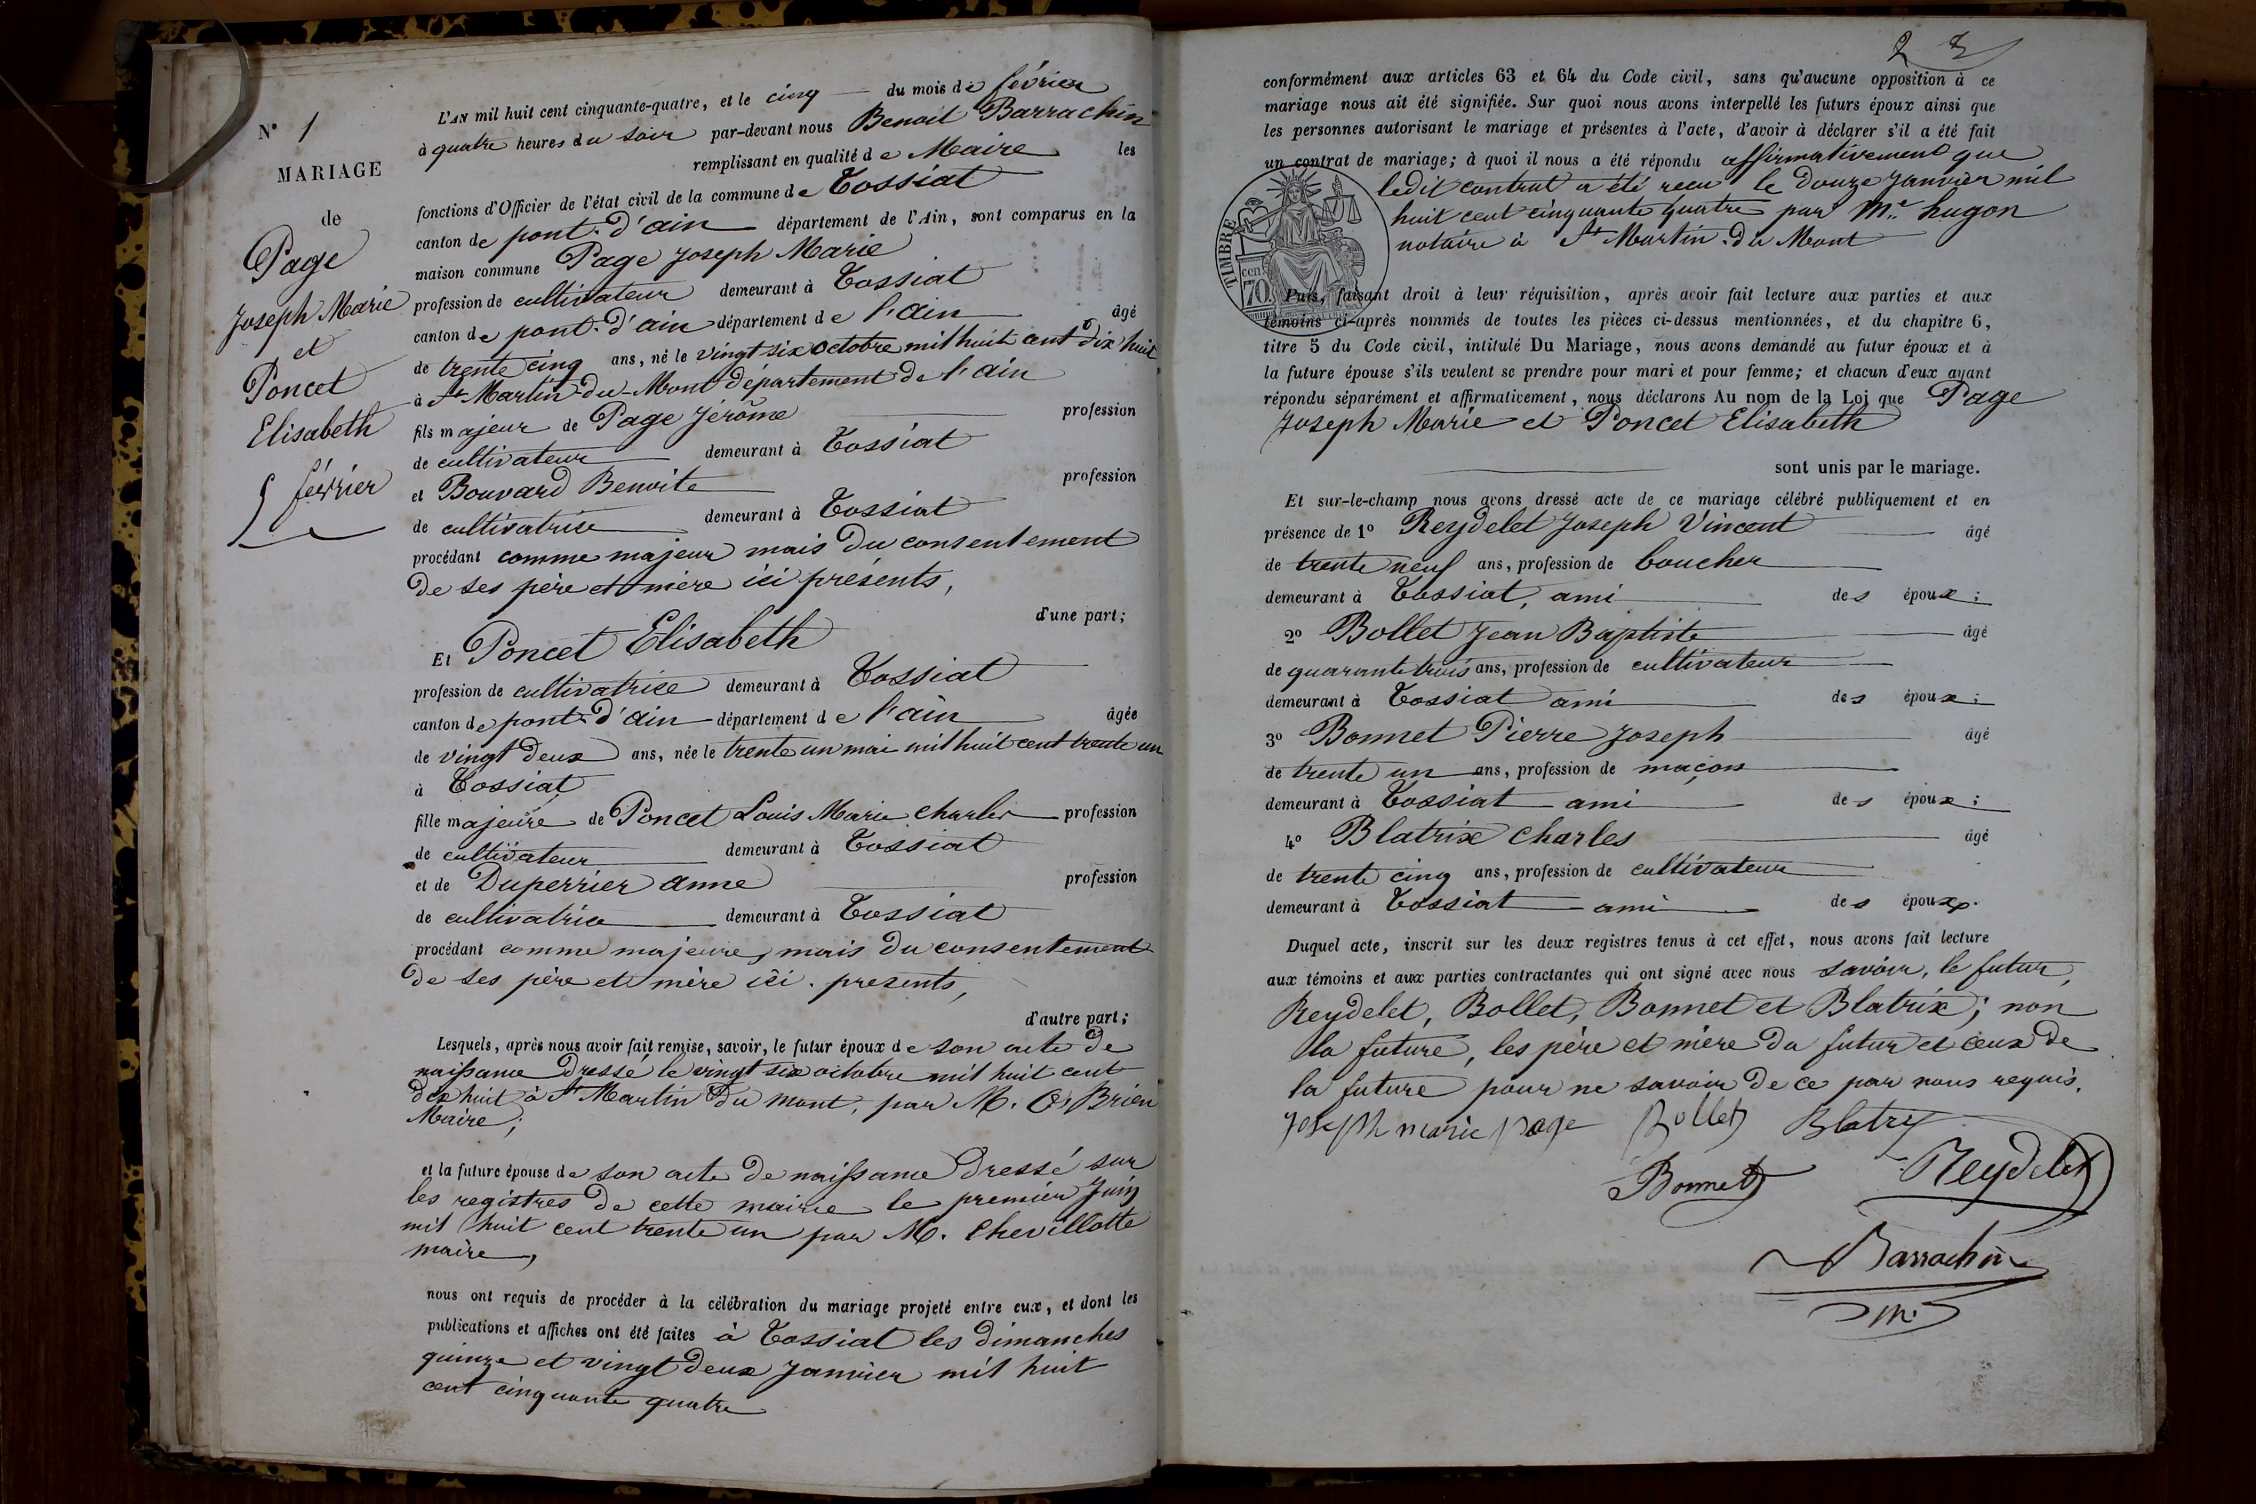 N° 1
MARIAGE
de
Page
Joseph Marie
et
Poncet
Elisabeth
5 février
L'AN mil huit cent cinquante-quatre, et le cinq du mois de février
à quatre heures du soir par-devant nous Benoit Barrachin
remplissant en qualité de Maire les
fonctions d'Officier de l'état civil de la commune de Tossiat
canton de pont-d'ain département de l'Ain, sont comparus en la
maison commune Page Joseph Marie
profession de cultivateur demeurant à Tossiat
canton de pont-d'ain département de l'ain âgé
de trente cinq ans, né le vingt six octobre mil huit cent dix huit
à St Martin-du-Mont département de l'ain
fils majeur de Page Jérôme profession
de cultivateur demeurant à Tossiat
et Bouvard Benoite profession
de cultivatrice demeurant à Tossiat
procédant comme majeur mais du consentement
de ses père et mère ici présents,
d'une part;
Et Poncet Elisabeth
profession de cultivatrice demeurant à Tossiat
canton de pont-d'ain département de l'ain âgée
de vingt deux ans, née le trente un mai mil huit cent trente un
à Tossiat
fille majeure de Poncet Louis Marie Charles profession
de cultivateur demeurant à Tossiat
et de Duperrier anne profession
de cultivatrice demeurant à Tossiat
procédant comme majeure, mais du consentement
de ses père et mère ici presents,
d'autre part;
Lesquels, après nous avoir fait remise, savoir, le futur époux de son acte de
naissance dressé le vingt six octobre mil huit cent
dix huit à St Martin du mont, par M. Brien
Maire;
et la future épouse de son acte de naissance dressé sur
les registres de cette mairie le premier Juin
mil huit cent trente un par M. Chevillotte
maire,
nous ont requis de procéder à la célébration du mariage projeté entre eux, et dont les
publications et affiches ont été faites à Tossiat les dimanches
quinze et vingt deux Janvier mil huit
cent cinquante quatre
2
conformément aux articles 63 et 64 du Code civil, sans qu'aucune opposition à ce
mariage nous ait été signifiée. Sur quoi nous avons interpellé les futurs époux ainsi que
les personnes autorisant le mariage et présentes à l'acte, d'avoir à déclarer s'il a été fait
un contrat de mariage; à quoi il nous a été répondu affirmativement que
ledit contrat a été recu le douze Janvier mil
huit cent cinquante quatre par Me hugon
notaire à St Martin-du Mont
TIMBRE
cen
70
Puis, faisant droit à leur réquisition, après avoir fait lecture aux parties et aux
témoins ci-après nommés de toutes les pièces ci-dessus mentionnées, et du chapitre 6,
titre 5 du Code civil, intitulé Du Mariage, nous avons demandé au futur époux et à
la future épouse s'ils veulent se prendre pour mari et pour femme; et chacun d'eux ayant
répondu séparément et affirmativement, nous déclarons Au nom de la Loi que Page
Joseph Marie et Poncet Elisabeth
sont unis par le mariage.
Et sur-le-champ nous avons dressé acte de ce mariage célébré publiquement et en
présence de 1° Reydelet Joseph Vincent âgé
de trente neuf ans, profession de boucher
demeurant à Tossiat, ami des époux;
2° Bollet Jean Baptiste âgé
de quarante trois ans, profession de cultivateur
demeurant à Tossiat ami des époux;
3° Bonnet Pierre Joseph âgé
de trente un ans, profession de maçon
demeurant à Tossiat ami des époux;
4° Blatrix Charles âgé
de trente cinq ans, profession de cultivateur
demeurant à Tossiat ami des époux.
Duquel acte, inscrit sur les deux registres tenus à cet effet, nous avons fait lecture
aux témoins et aux parties contractantes qui ont signé avec nous savoir, le futur,
Reydelet, Bollet, Bonnet et Blatrix; non
la future, les père et mère du futur et ceux de
la future pour ne savoir de ce par nous requis.
Joseph marie page Bollet Blatrix
Bonnet Reydelet
Barrachin
m.